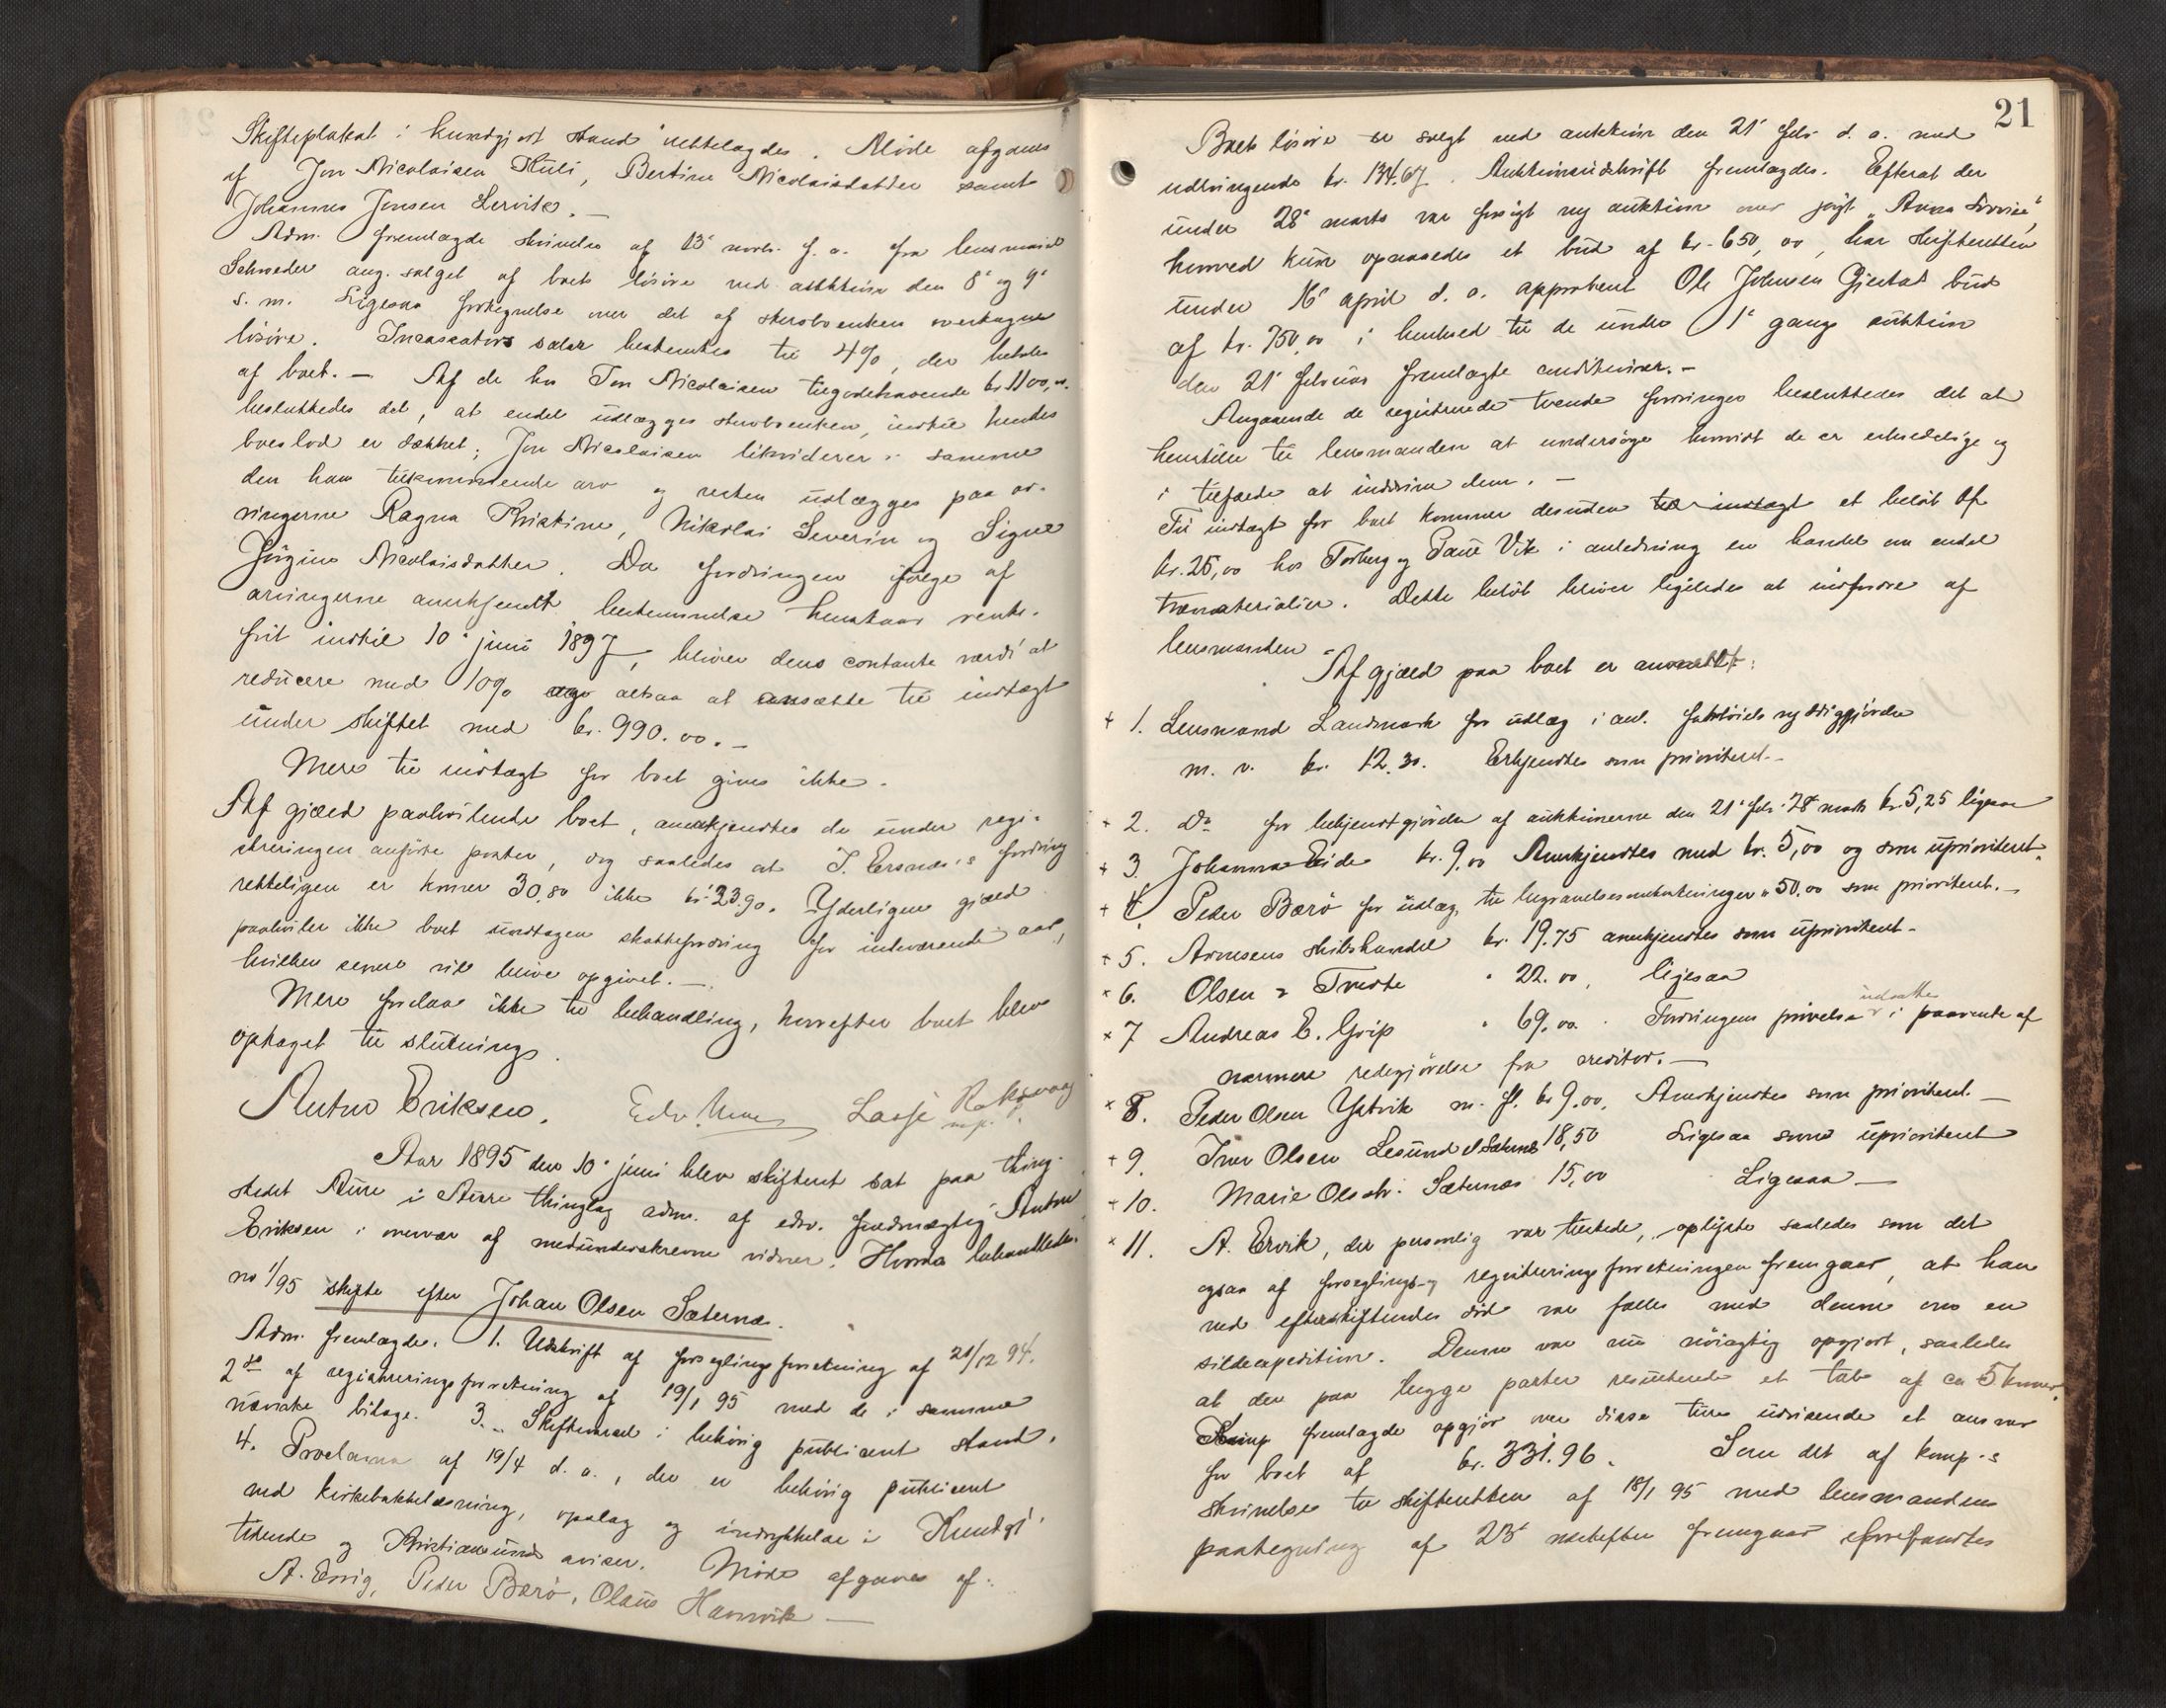 Skifteplakat i kundgjort stand vedtelagdes. Møde afgaves
af Jon Nicolaisen Huli, Bertine Nicolaisdatter samt
Johannes Jensen Lervik. —
Adm. fremlagde skrivelse af 13' novb. f. a. fra lensmand
Schrøder ang. salget af boets løsøre ved auktion den 8' og 9'
s. m. Ligesaa fortegnelse over det af sterboenken overtagne
løsøre. Incassators salær bestemtes til 4%, der betales
af boet. — Af de hos Jon Nicolaisen tilgodehavende kr 1100,00
besluttedes det, at endel udlægges sterboenken, indtil hendes
boeslod er dækket; Jon Nicolaisen likviderer i samme
den ham tilkommende arv og resten udlægges paa ar-
vingerne Ragna Kristine, Nikolai Severin og Signe
Jørgine Nicolaisdatter. Da fordringen ifølge af
arvingerne anerkjendt bestemmelse henstaar rente-
frit indtil 10' juni 1897, bliver dens contante værdi at
reducere med 10% altsaa at ansætte til indtægt
under skiftet med kr. 990.00. —
Mere til indtægt for boet gives ikke.
Af gjæld paahvilende boet, anerkjendtes de under regi-
streringen anførte poster, dog saaledes at J. Ersnæs's fordring
rettelig er kroner 30,80 ikke kr. 23.90. Yderligere gjæld
paahviler ikke boet undtagen skattefordring for indeværende aar,
hvilken senere vil blive opgivet. —
Mere forelaa ikke til behandling, hvorefter boet blev
optaget til slutning.
Anton Eriksen. Lasse Roksvaag
Aar 1895 den 10' juni blev skifteret sat paa thing-
stedet Aure i Aure thinglag adm. af edsv. fuldmægtig Anton
Eriksen i overvær af medunderskrevne vidner. Hvorda behandledes:
no 1/95 skifte efter Johan Olsen Sæternæs.
Adm. fremlagde. 1. Udskrift af forseglingsforretning af 21/12 94.
2 do af registreringsforretning af 19/1 95 med de i samme
nævnte bilage. 3. Skiftevarsel i behørig publicert stand.
4. Proclama af 19/4 d. a., der er behørig publicert
ved kirkebakkelæsning, opslag og indrykkelse i Kundgj.
tidende og Kristiansunds aviser. Møde afgaves af:
A. Ervig, Peder Bærø, Olaus Havnvik —
21
Boets løsøre er solgt ved auktion den 21' febr d. a. med
udbringende kr. 134.67. Auktionsudskrift fremlagdes. Efterat der
under 28' marts var forsøgt ny auktion over jagt „Anna Lovise",
hvorved kun opnaaedes et bud af kr. 650,00, har skifteretten
under 16' april d. a. approbert Ole Johnsen Gjestad bud
af kr. 750,00 i henhold til de under 1' gangs auktion
den 21' februar fremlagte conditioner. —
Angaaende de registrerede tvende fordringer besluttedes det at
henstille til lensmanden at undersøge hvorvidt de er erholdelige og
i tilfælde at inddrive dem. —
Til indtægt for boet kommer desuden til indtægt et beløb af
kr. 25,00 hos Torberg og Paul Vik i anledning en handel om endel
træmaterialier. Dette beløb bliver ligeledes at indfordre af
lensmanden
Af gjæld paa boet er anmeldt:
+ 1. Lensmand Landmark for udlæg i anl. fartøiets ryddiggjørelse
m. v. kr. 12.30. Erkjendtes som prioriteret. —
+ 2. Do for bekjendtgjørelse af auktionerne den 21' febr. 28' marts kr. 5,25 ligesaa
+ 3. Johanna Eide kr. 9,00 Anerkjendtes med kr. 5,00 og som uprioriteret.
+ 4. Peder Bærø for udlæg til begravelsesomkostninger " 50.00 som prioriteret. —
+ 5. Arnesens skibshandel kr. 19.75 anerkjendtes som uprioriteret —
× 6. Olsen & Tveste " 22.00, ligesaa
× 7 Andreas E. Grip " 69,00. Fordringens prøvelse udsattes i paavente af
nærmere redegjørelse fra creditor. —
× 8. Peder Olsen Ystvik m. fl. kr 9,00. Anerkjendtes som prioriteret. —
+ 9. Iver Olsen Lesund el. Sæternes 18,50 Ligesaa som uprioriteret
+ 10. Marie Olsdtr. Sæternæs 15,00 Ligesaa —
× 11. A. Ervik, der personlig var tilstede, oplyste saaledes som det
ogsaa af forseglings- og registreringsforretningen fremgaar, at han
ved efterskiftendes død var fælles med denne om en
sildexpedition. Denne var nu nøiagtig opgjort, saaledes
at der paa begge parter resulterede et tab af ca 5 kroner.
Komp fremlagde opgjør over disse ture udvisende et ansvar
for boet af kr. 331.96. Som det af komp.s
skrivelse til skifteretten af 18/1 95 med lensmandens
paategning af 23' næstefter fremgaar eforefandtes